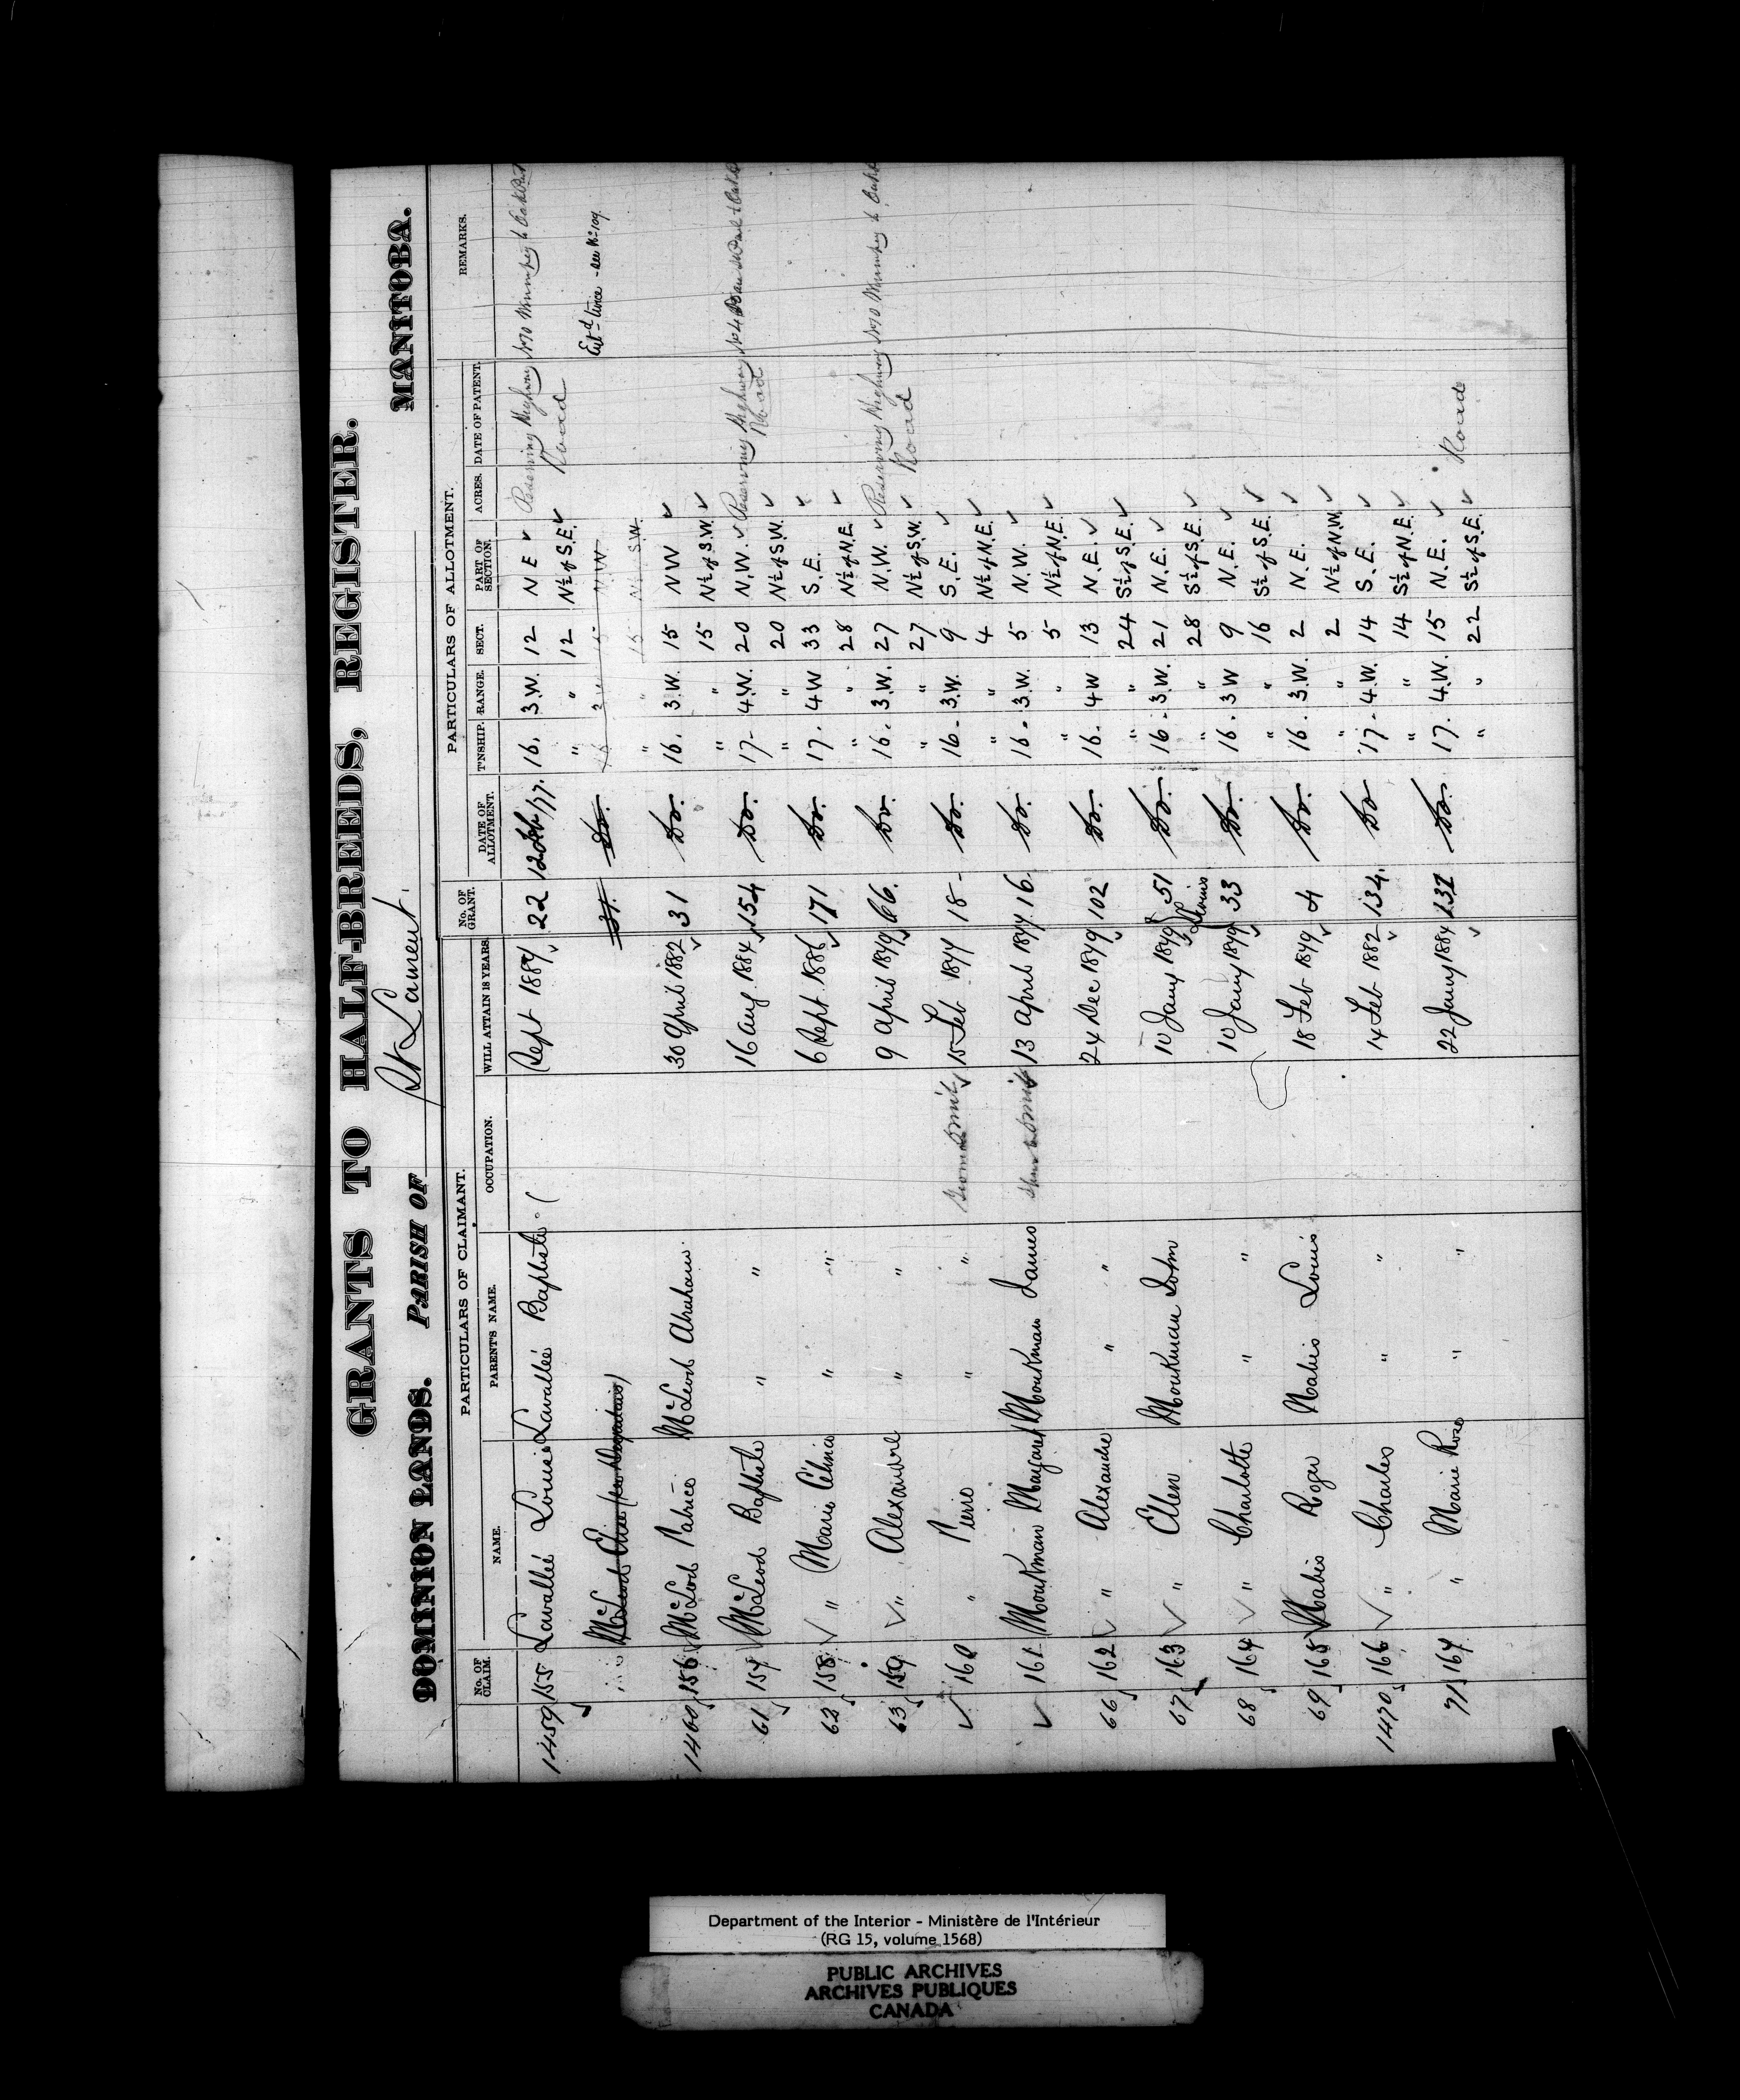 GRANTS TO HALF-BREEDS, REGISTER.
DOMINION LANDS. PARISH OF St Laurent. MANITOBA.
PARTICULARS OF CLAIMANT. PARTICULARS OF ALLOTMENT.
No. OF CLAIM. NAME. PARENT'S NAME. OCCUPATION. WILL ATTAIN 18 YEARS. No. OF GRANT. DATE OF ALLOTMENT. T'NSHIP. RANGE. SECT. PART OF SECTION. ACRES. DATE OF PATENT. REMARKS.
1459 155 Lavallée Louise Lavallée Baptiste Sept 1884 22 12 Feb/77. 16. 3.W. 12 N E Reserving Highway No 10 Winnipeg to Oak Point
" " 12 N½ of S.E. Road
McLeod 31. Do. 16 3 W 15 N.W. Ent'd twice - see No 109
" " 15 N½ S.W.
1460 156 McLeod Patrice McLeod Abraham. 30 April 1882 31 Do. 16. 3.W. 15 N W
" " 15 N½ of S.W.
61 157 McLeod Baptiste " " 16 Aug. 1884 154 Do. 17- 4.W. 20 N.W. Reserving Highway No 4
" " 20 N½ of S.W. Road
62 158 " Marie Célina " " 6 Sept. 1886 171 Do. 17. 4 W 33 S.E.
" " 28 N½ of N.E.
63 159 " Alexandre " " 9 April 1879 66. Do. 16. 3.W. 27 N.W. Reserving Highway No 10 Winnipeg to Oak
" " 27 N½ of S.W. Road
160 " Pierre " " 15 Feb 1877 18- Do. 16- 3.W. 9 S.E.
" " 4 N½ of N.E.
161 Mourkman Margaret Mourkman James 13 April 1877. 16. Do. 16- 3.W. 5 N.W.
" " 5 N½ of N.E.
66 162 " Alexandre " " 24 Dec 1879 102 Do. 16. 4 W 13 N.E.
" " 24 S½ of S.E.
67 163 " Ellen Mourkman John 10 Jany 1879 51 Do. 16- 3.W. 21 N.E.
" " 28 S½ of S.E.
68 164 " Charlotte " " 10 Jany 1879 33 Do. 16. 3 W 9 N.E.
" " 16 S½ of S.E.
69 165 Nabis Roger Nabis Louis 18 Feb 1879 4 Do. 16. 3.W. 2 N.E.
" " 2 N½ of N.W.
1470 166 " Charles " " 14 Feb 1882 134. Do 17- 4.W. 14 S.E.
" " 14 S½ of N.E.
71 167 " Marie Rose " " 22 Jany 1884 Do. 17. 4.W. 15 N.E.
" " 22 S½ of S.E. Road
Department of the Interior - Ministère de l'Intérieur
(RG 15, volume 1568)
PUBLIC ARCHIVES
ARCHIVES PUBLIQUES
CANADA